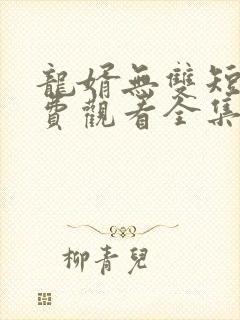 龍婿無雙短
費觀看全集
柳青兒